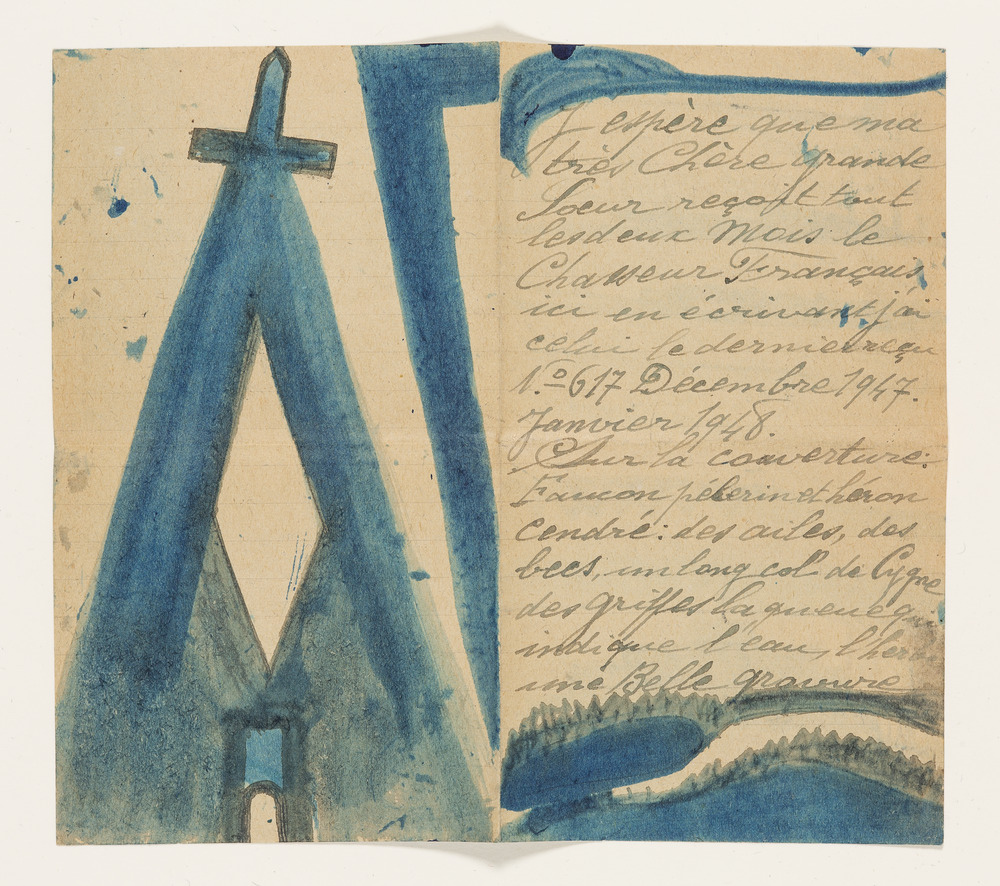 J espère que ma
très Chère grande
Soeur reçoit tout
les deux Mois le
Chasseur Français
ici en écrivant j'ai
celui le dernier reçu
N.º 617 Décembre 1947.
Janvier 1948.
Sur la couverture:
Faucon pélerin et héron
cendré: des ailes, des
becs, un long col de Cygne
des griffes la queue qui
indique l'eau, l'héron
une Belle gravure